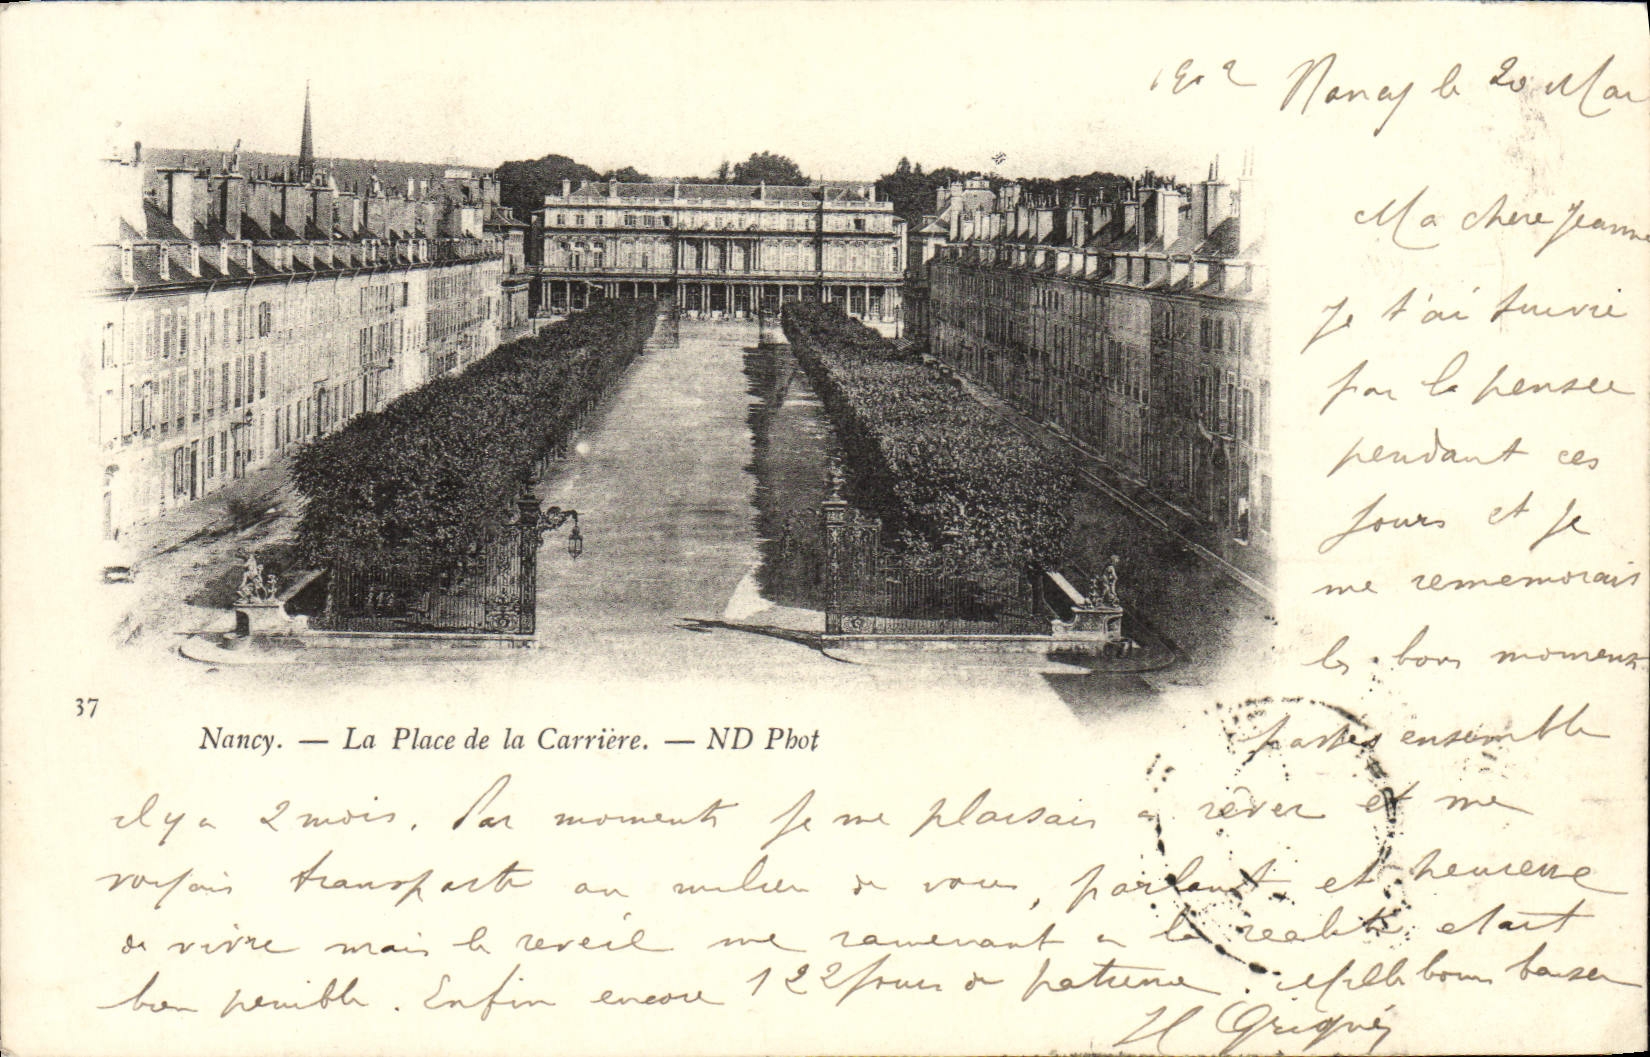 1902 Nancy le 20 Mai
Ma chere Jeanne
Je t'ai suivie
par la pensee
pendant ces
jours et je
me rememorais
les bons moments
passés ensemble
37
Nancy. — La Place de la Carrière. — ND Phot
il y a 2 mois. Par moments je me plaisais a rêver et me
voyais transporté au milieu de vous, parlant et heureuse
de vivre mais le reveil me ramenant a la realité etait
bien penible. Enfin encore 122 jours de patience. Mille bons baisers
H